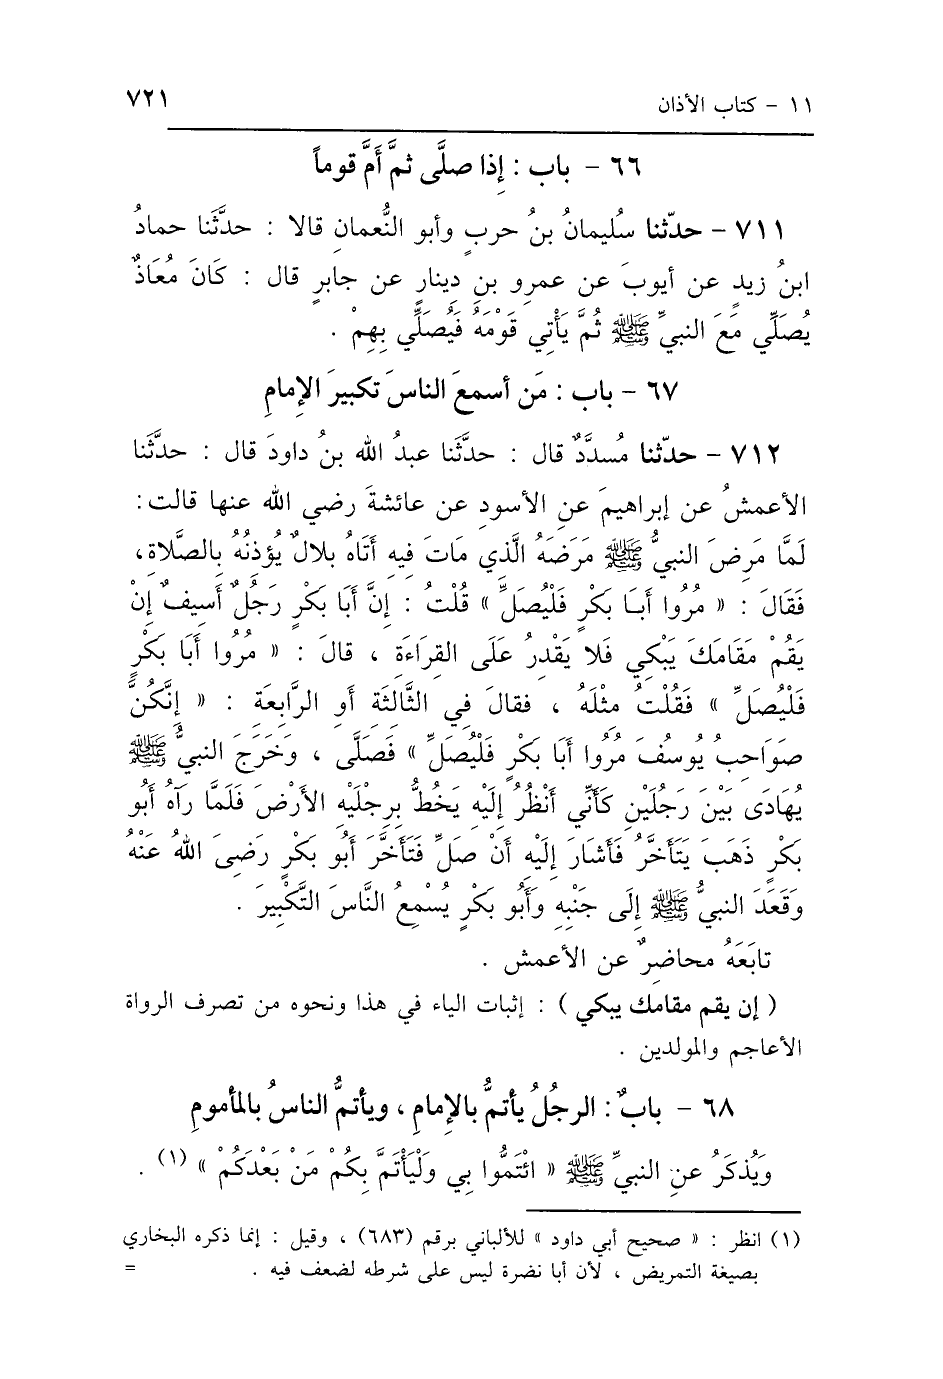 ١١ - كتاب الأذان ٧٢١
٦٦ - باب : إذا صلَّى ثمَّ أَمَّ قوماً
٧١١ - حدّثنا سُليمانُ بنُ حربٍ وأبو النُّعمانِ قالا : حدَّثَنا حمادُ
ابنُ زيدٍ عن أيوبَ عن عمرِو بنِ دينارٍ عن جابرٍ قال : كَانَ مُعَاذٌ
يُصَلِّي مَعَ النبيِّ ﷺ ثُمَّ يَأْتِي قَوْمَهُ فَيُصَلِّي بِهِمْ .
٦٧ - باب : مَن أسمعَ الناسَ تكبيرَ الإمامِ
٧١٢ - حدّثنا مُسدَّدٌ قال : حدَّثَنا عبدُ الله بنُ داودَ قال : حدَّثَنا
الأعمشُ عن إبراهيمَ عنِ الأسودِ عن عائشةَ رضي الله عنها قالت :
لَمَّا مَرِضَ النبيُّ ﷺ مَرَضَهُ الَّذي مَاتَ فيهِ أتَاهُ بلالٌ يُؤذِنُهُ بالصَّلاة ،
فَقَالَ : « مُرُوا أبَا بَكْرٍ فَلْيُصَلِّ » قُلْتُ : إنَّ أبَا بَكْرٍ رَجُلٌ أَسِيفٌ إنْ
يَقُمْ مَقَامَكَ يَبْكِي فَلا يَقْدِرُ عَلَى القِرَاءَةِ ، قالَ : « مُرُوا أبَا بَكْرٍ
فَلْيُصَلِّ » فَقُلْتُ مِثْلَهُ ، فقالَ فِي الثَّالِثَةِ أوِ الرَّابِعَةِ : « إنَّكُنَّ
صَوَاحِبُ يُوسُفَ مُرُوا أبَا بَكْرٍ فَلْيُصَلِّ » فَصَلَّى ، وَخَرَجَ النبيُّ ﷺ
يُهَادَى بَيْنَ رَجُلَيْنِ كَأَنِّي أَنْظُرُ إلَيْهِ يَخُطُّ بِرِجْلَيْهِ الأَرْضَ فَلَمَّا رَآهُ أَبُو
بَكْرٍ ذَهَبَ يَتَأَخَّرُ فَأَشَارَ إِلَيْهِ أنْ صَلِّ فَتَأَخَّرَ أَبُو بَكْرٍ رَضِىَ اللهُ عَنْهُ
وَقَعَدَ النبيُّ ﷺ إلَى جَنْبِهِ وأَبُو بَكْرٍ يُسْمِعُ النَّاسَ التَّكْبِيرَ .
تابَعَهُ محاضِرٌ عن الأعمش .
( إن يقم مقامك يبكي ) : إثبات الياء في هذا ونحوه من تصرف الرواة
الأعاجم والمولدين .
٦٨ - بابٌ : الرجلُ يأتمُّ بالإمامِ ، ويأتمُّ الناسُ بالمأمومِ
وَيُذكَرُ عنِ النبيِّ ﷺ « ائْتَمُّوا بي وَلْيَأْتَمَّ بِكُمْ مَنْ بَعْدَكُمْ » (١) .
(١) انظر : « صحيح أبي داود » للألباني برقم (٦٨٣) ، وقيل : إنما ذكره البخاري
بصيغة التمريض ، لأن أبا نضرة ليس على شرطه لضعف فيه . =